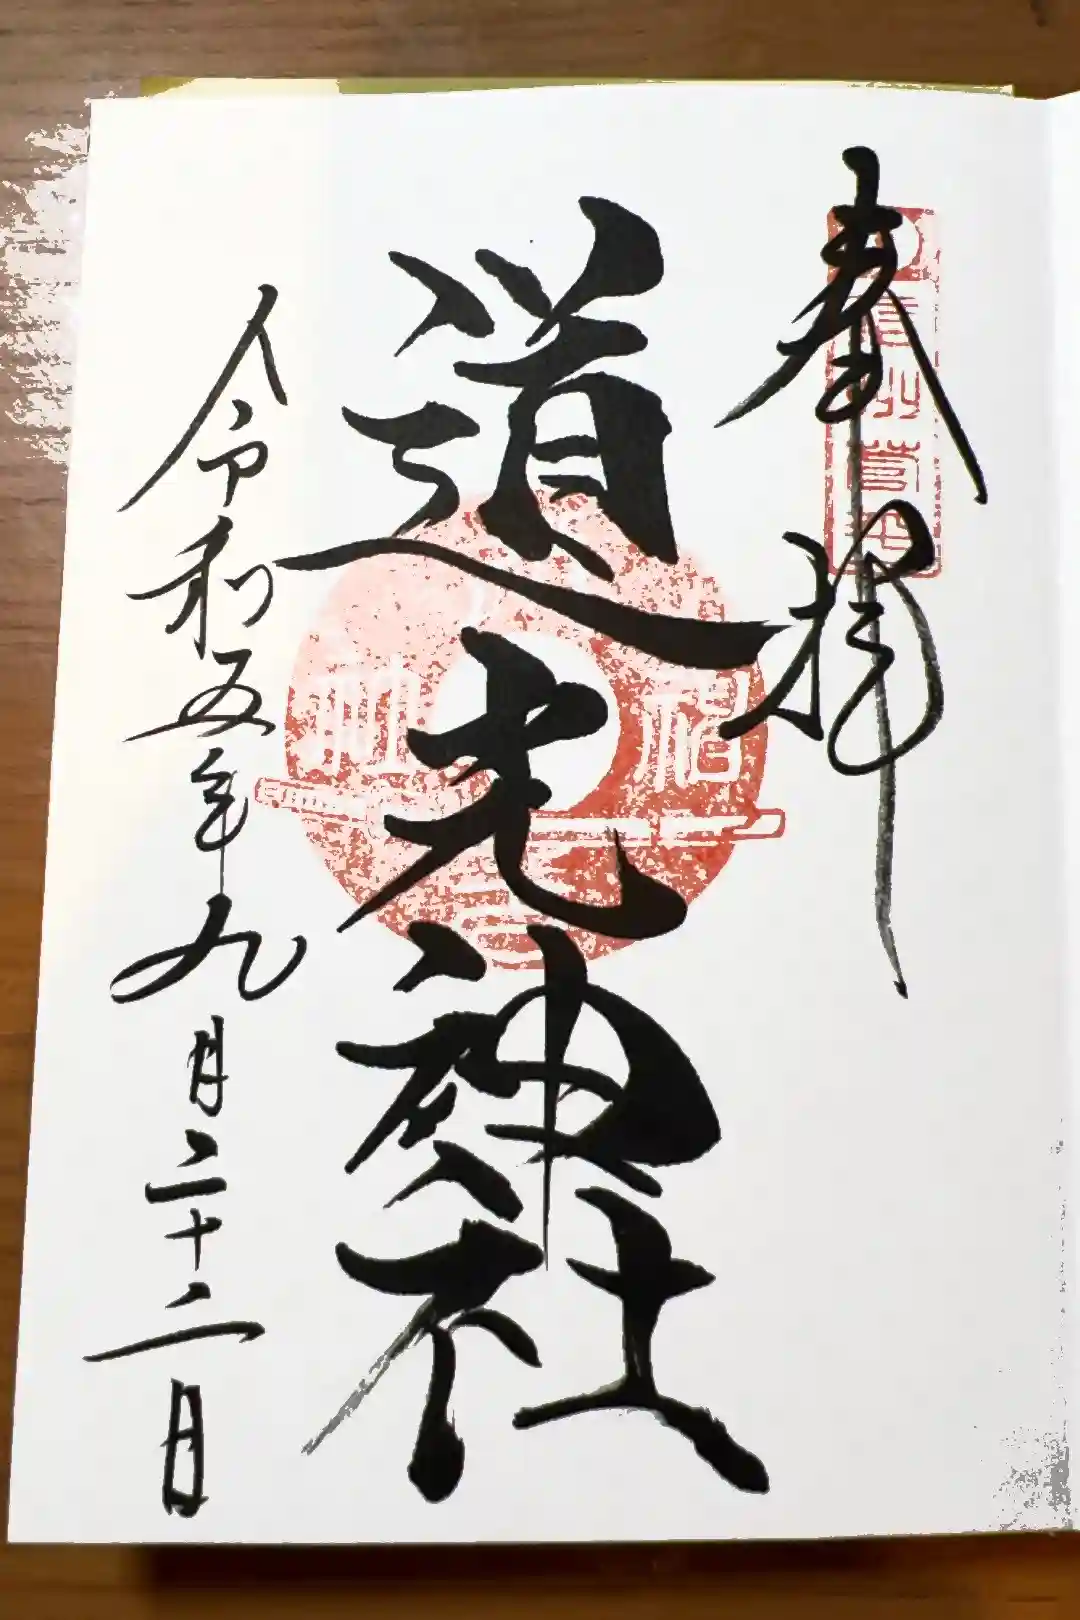 奉拝
道光神社
令和五年九月二十二日